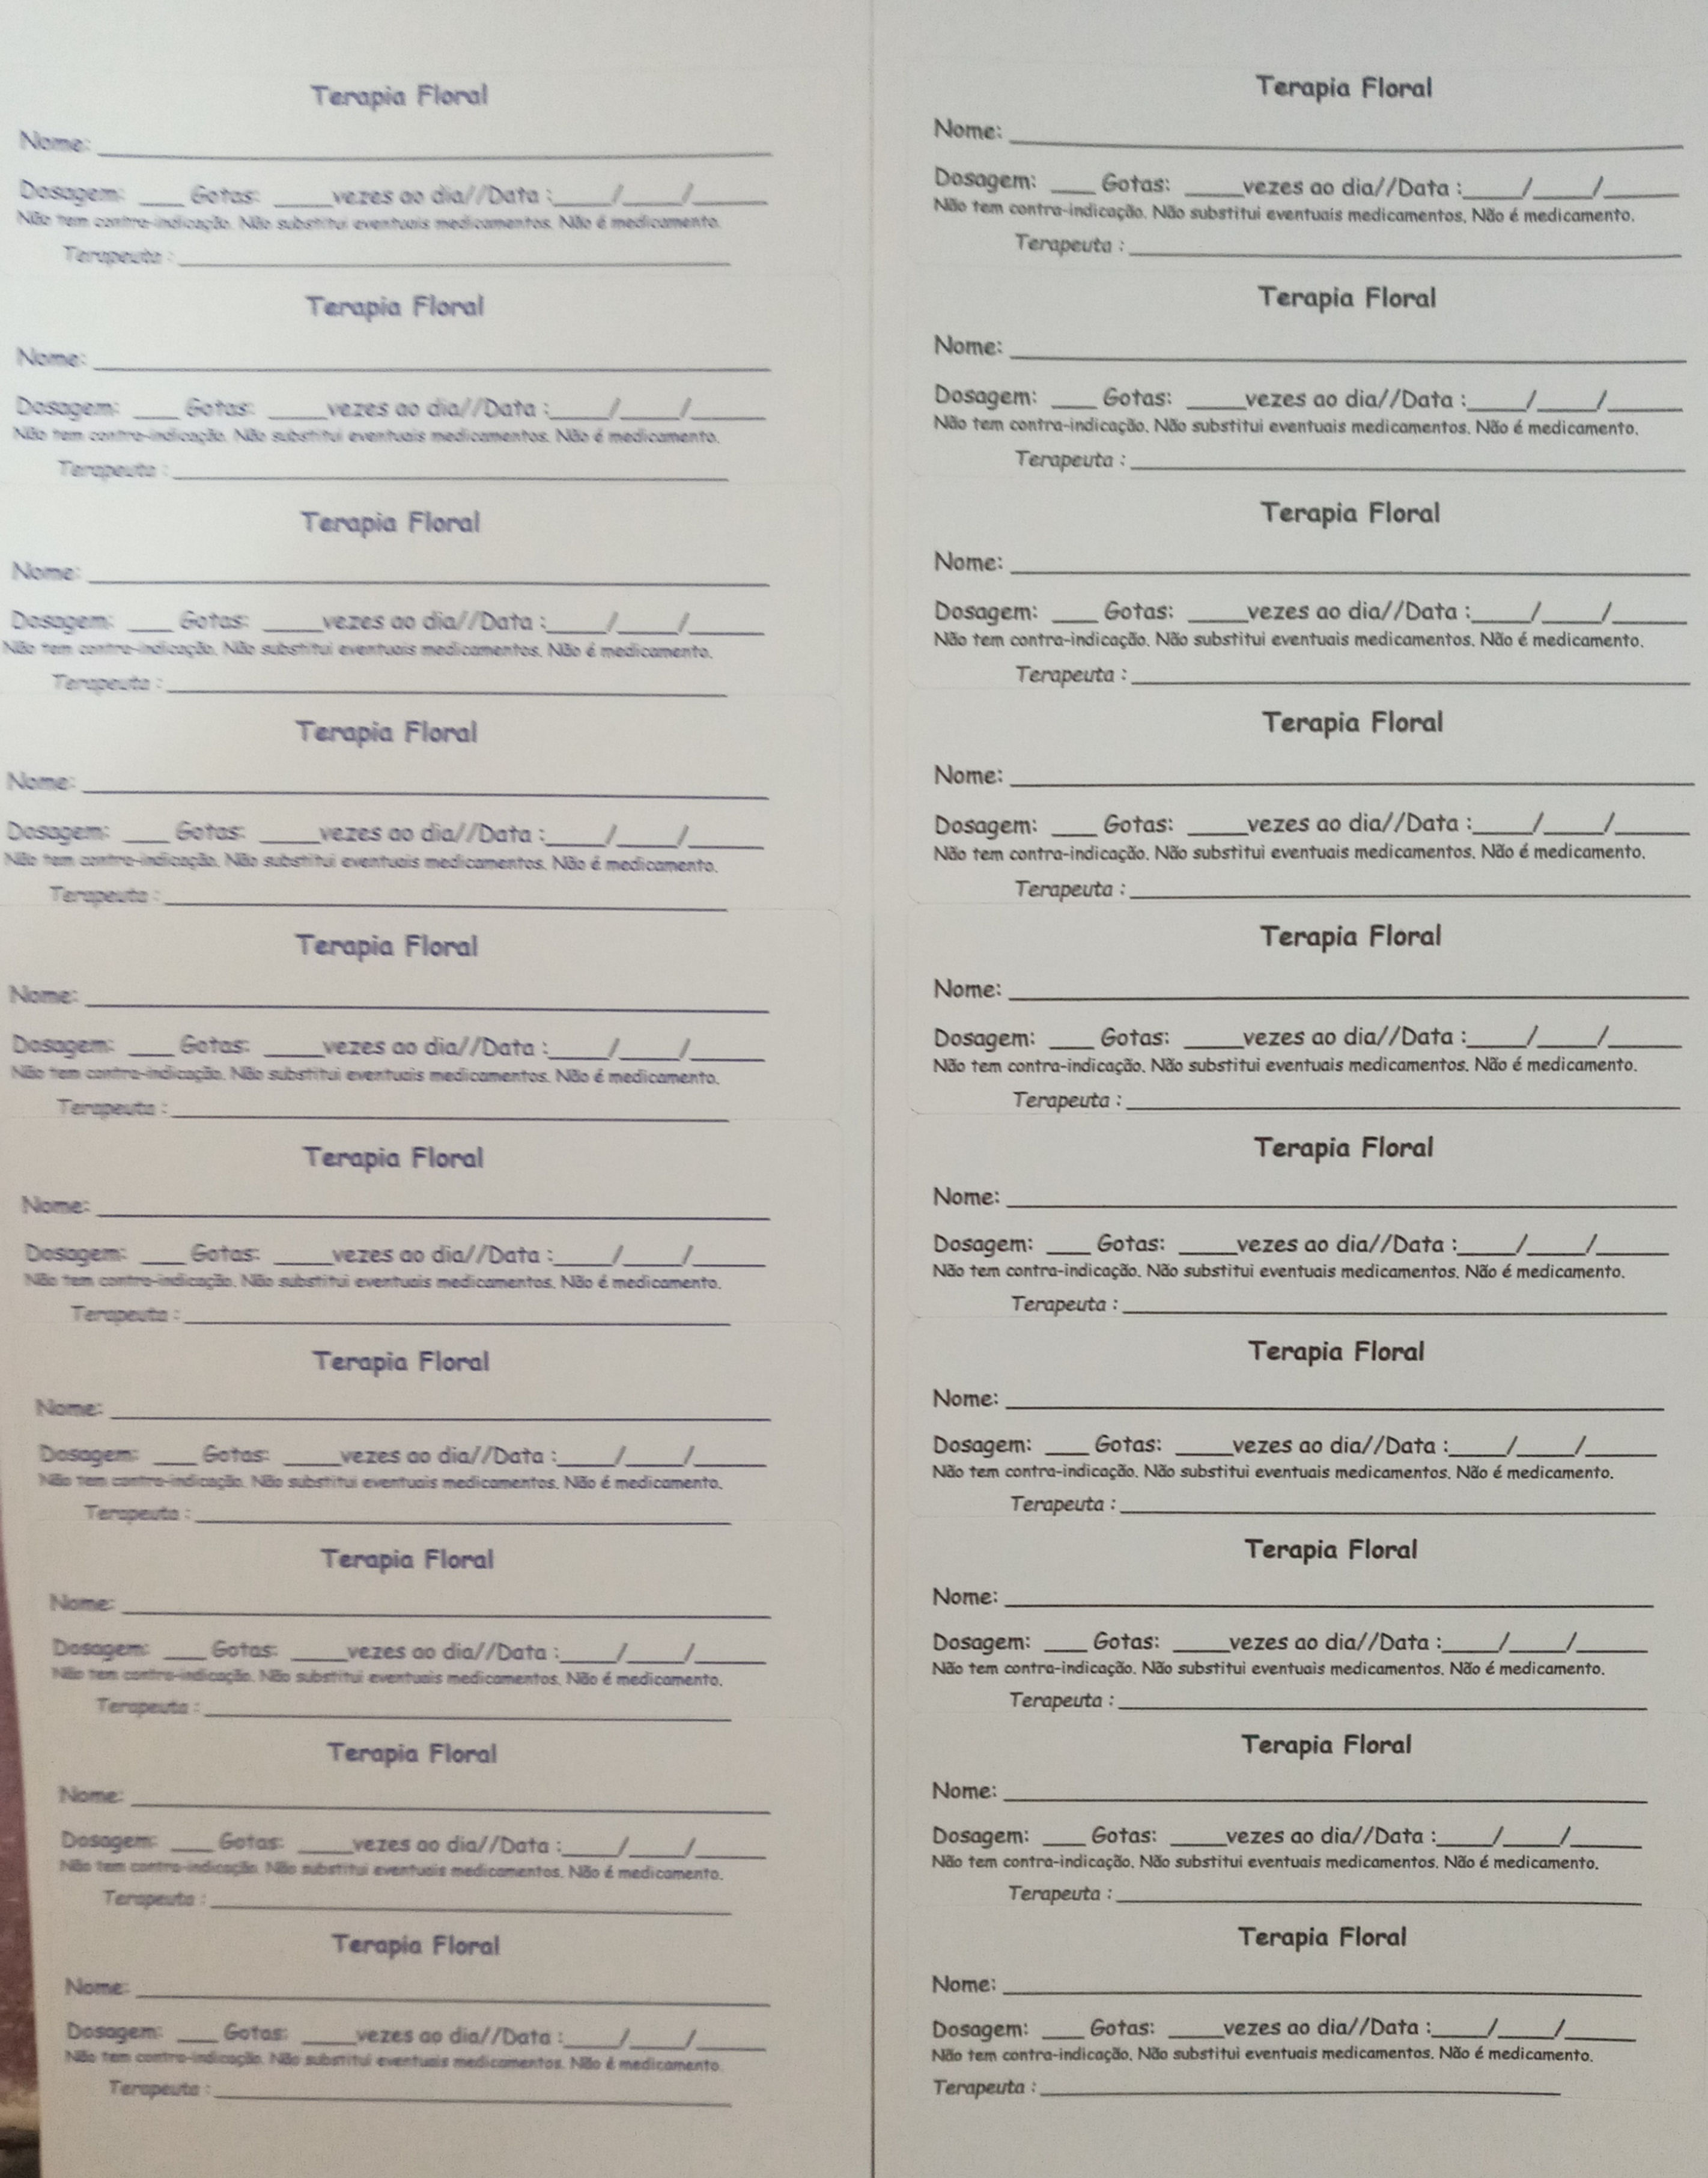 Terapia Floral
Nome: ____________
Dosagem: ____ Gotas: _____vezes ao dia//Data :_____/_____/______
Não tem contra-indicação. Não substitui eventuais medicamentos. Não é medicamento.
Terapeuta : ____________
Terapia Floral
Nome: ____________
Dosagem: ____ Gotas: _____vezes ao dia//Data :_____/_____/______
Não tem contra-indicação. Não substitui eventuais medicamentos. Não é medicamento.
Terapeuta : ____________
Terapia Floral
Nome: ____________
Dosagem: ____ Gotas: _____vezes ao dia//Data :_____/_____/______
Não tem contra-indicação. Não substitui eventuais medicamentos. Não é medicamento.
Terapeuta : ____________
Terapia Floral
Nome: ____________
Dosagem: ____ Gotas: _____vezes ao dia//Data :_____/_____/______
Não tem contra-indicação. Não substitui eventuais medicamentos. Não é medicamento.
Terapeuta : ____________
Terapia Floral
Nome: ____________
Dosagem: ____ Gotas: _____vezes ao dia//Data :_____/_____/______
Não tem contra-indicação. Não substitui eventuais medicamentos. Não é medicamento.
Terapeuta : ____________
Terapia Floral
Nome: ____________
Dosagem: ____ Gotas: _____vezes ao dia//Data :_____/_____/______
Não tem contra-indicação. Não substitui eventuais medicamentos. Não é medicamento.
Terapeuta : ____________
Terapia Floral
Nome: ____________
Dosagem: ____ Gotas: _____vezes ao dia//Data :_____/_____/______
Não tem contra-indicação. Não substitui eventuais medicamentos. Não é medicamento.
Terapeuta : ____________
Terapia Floral
Nome: ____________
Dosagem: ____ Gotas: _____vezes ao dia//Data :_____/_____/______
Não tem contra-indicação. Não substitui eventuais medicamentos. Não é medicamento.
Terapeuta : ____________
Terapia Floral
Nome: ____________
Dosagem: ____ Gotas: _____vezes ao dia//Data :_____/_____/______
Não tem contra-indicação. Não substitui eventuais medicamentos. Não é medicamento.
Terapeuta : ____________
Terapia Floral
Nome: ____________
Dosagem: ____ Gotas: _____vezes ao dia//Data :_____/_____/______
Não tem contra-indicação. Não substitui eventuais medicamentos. Não é medicamento.
Terapeuta : ____________
Terapia Floral
Nome: ____________
Dosagem: ____ Gotas: _____vezes ao dia//Data :_____/_____/______
Não tem contra-indicação. Não substitui eventuais medicamentos. Não é medicamento.
Terapeuta : ____________
Terapia Floral
Nome: ____________
Dosagem: ____ Gotas: _____vezes ao dia//Data :_____/_____/______
Não tem contra-indicação. Não substitui eventuais medicamentos. Não é medicamento.
Terapeuta : ____________
Terapia Floral
Nome: ____________
Dosagem: ____ Gotas: _____vezes ao dia//Data :_____/_____/______
Não tem contra-indicação. Não substitui eventuais medicamentos. Não é medicamento.
Terapeuta : ____________
Terapia Floral
Nome: ____________
Dosagem: ____ Gotas: _____vezes ao dia//Data :_____/_____/______
Não tem contra-indicação. Não substitui eventuais medicamentos. Não é medicamento.
Terapeuta : ____________
Terapia Floral
Nome: ____________
Dosagem: ____ Gotas: _____vezes ao dia//Data :_____/_____/______
Não tem contra-indicação. Não substitui eventuais medicamentos. Não é medicamento.
Terapeuta : ____________
Terapia Floral
Nome: ____________
Dosagem: ____ Gotas: _____vezes ao dia//Data :_____/_____/______
Não tem contra-indicação. Não substitui eventuais medicamentos. Não é medicamento.
Terapeuta : ____________
Terapia Floral
Nome: ____________
Dosagem: ____ Gotas: _____vezes ao dia//Data :_____/_____/______
Não tem contra-indicação. Não substitui eventuais medicamentos. Não é medicamento.
Terapeuta : ____________
Terapia Floral
Nome: ____________
Dosagem: ____ Gotas: _____vezes ao dia//Data :_____/_____/______
Não tem contra-indicação. Não substitui eventuais medicamentos. Não é medicamento.
Terapeuta : ____________
Terapia Floral
Nome: ____________
Dosagem: ____ Gotas: _____vezes ao dia//Data :_____/_____/______
Não tem contra-indicação. Não substitui eventuais medicamentos. Não é medicamento.
Terapeuta : ____________
Terapia Floral
Nome: ____________
Dosagem: ____ Gotas: _____vezes ao dia//Data :_____/_____/______
Não tem contra-indicação. Não substitui eventuais medicamentos. Não é medicamento.
Terapeuta : ____________